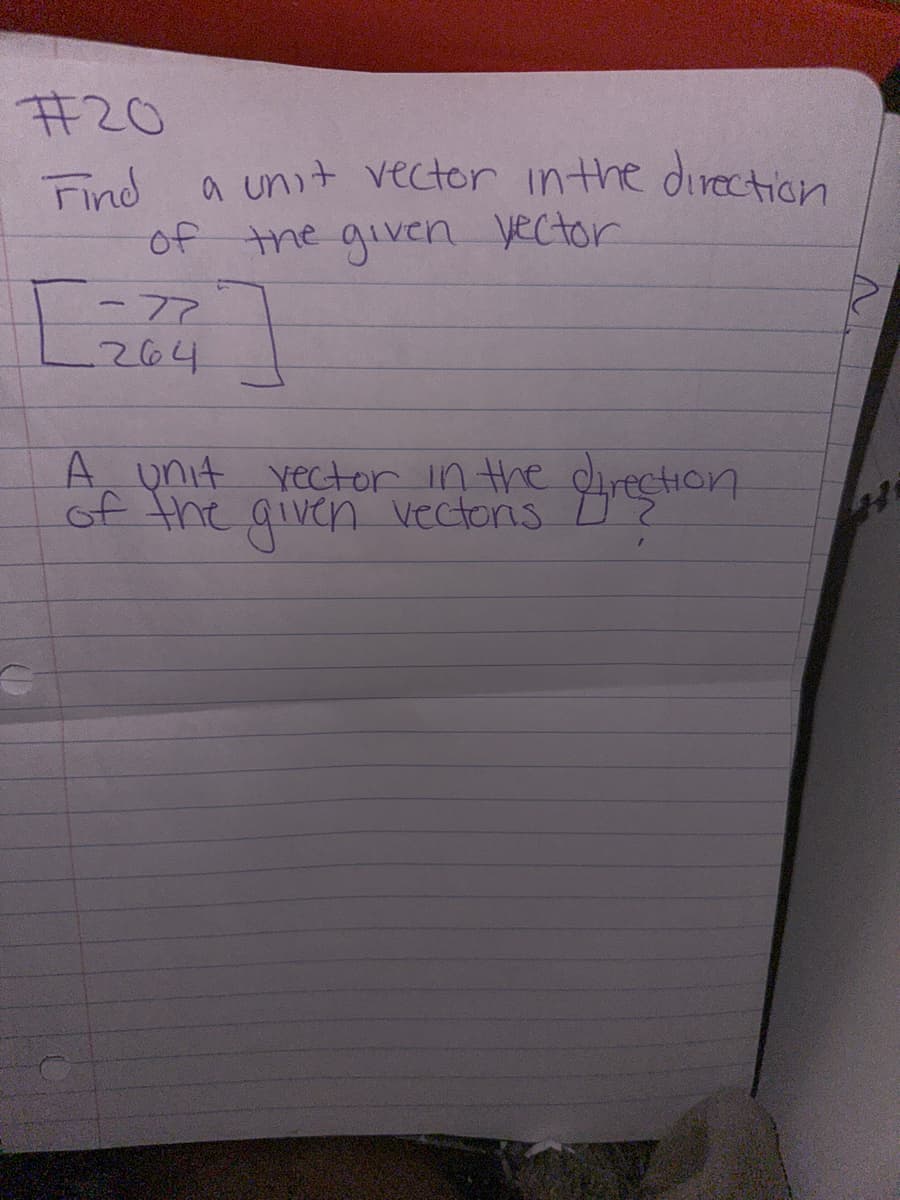 #20
Find a unit vector in the direction
of the given vector
[-77
264]
A unit vector in the direction
of the given vectoris ☐?